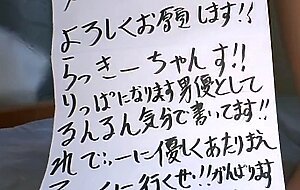 よろしくお願します!!
らっきーちゃんす!!
りっぱになります男優として
るんるん気分で書いてます!!
れでぃーに優しくあたりまえ
くに行くぜ!!がんばります